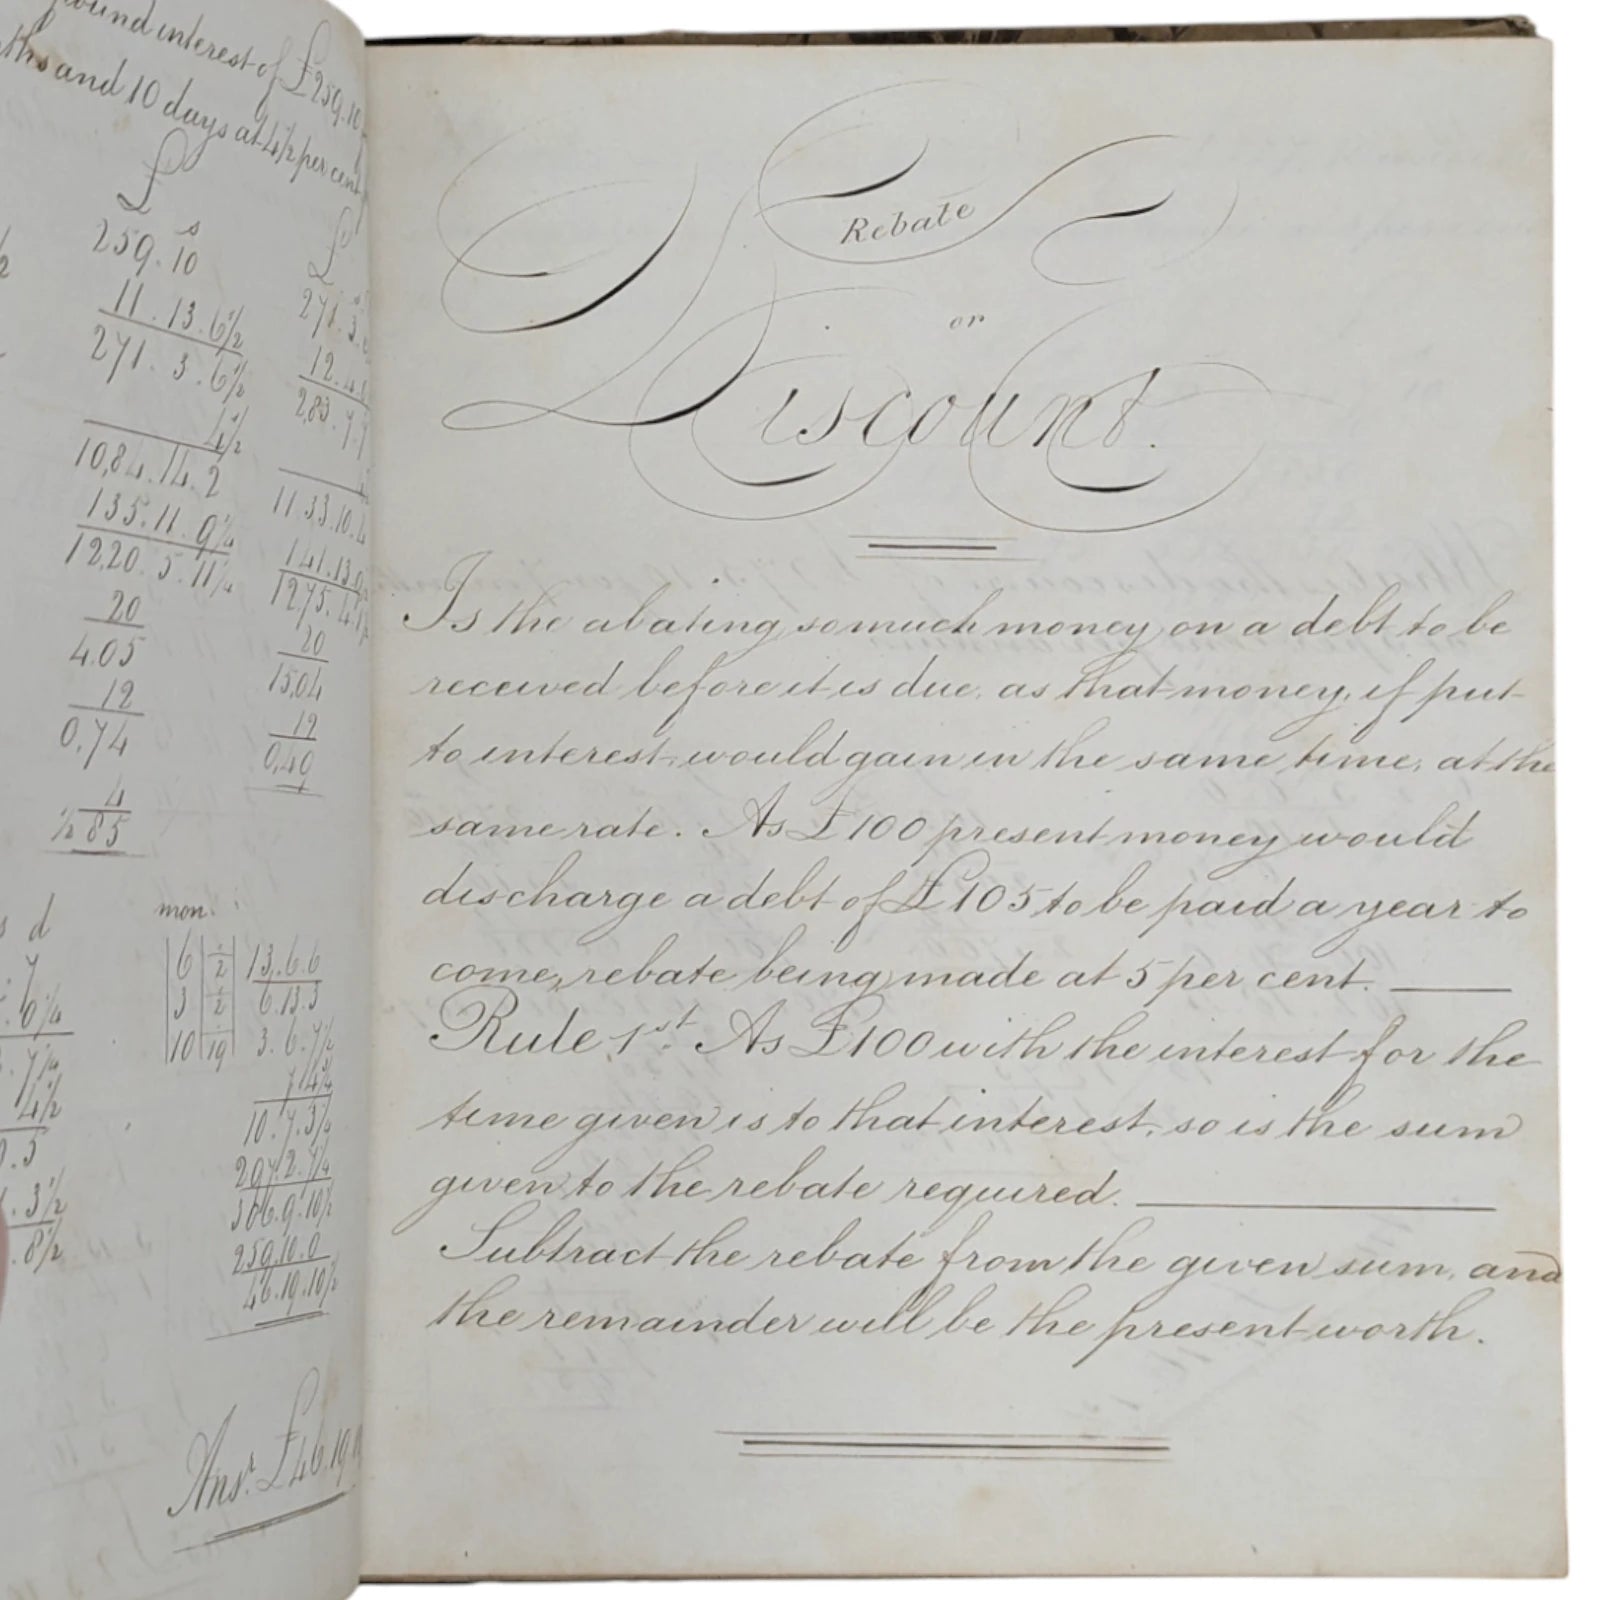 interest of £259.10
and 10 days at 4½ per cent
£
£
s
259.10
11.13.6½
271.3.6½
4½
10,84.14.2
135.11.9¼
12,20.5.11¼
20
4.05
12
0,74
4
½ 85
271.3.
12.4.
283.7.
11.33.10.4
141.13.
12,75.4.
20
15,04
12
0,49
s d
mon.
6 ½ 13.6.6
3 ½ 6.13.3
10 1/9 3.6.7½
7 4¾
10.7.3¼
297.2.7¼
306.9.10½
259.10.0
46.19.10½
Ansr. £46.19.
Rebate
or
Discount.
Is the abating so much money on a debt to be
received before it is due, as that money, if put
to interest, would gain in the same time, at the
same rate. As £100 present money would
discharge a debt of £105 to be paid a year to
come, rebate being made at 5 per cent.
Rule 1st. As £100 with the interest for the
time given is to that interest, so is the sum
given to the rebate required.
Subtract the rebate from the given sum, and
the remainder will be the present worth.